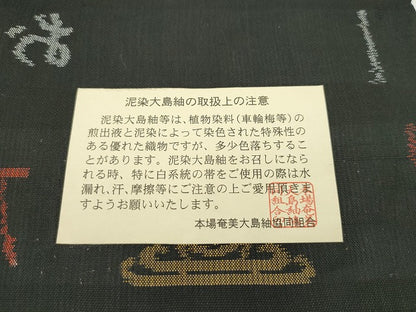 泥染大島紬の取扱上の注意
泥染大島紬等は、植物染料(車輪梅等)の
煎出液と泥染によって染色された特殊性の
ある優れた織物ですが、多少色落ちするこ
とがあります。泥染大島紬をお召しになら
れる時、特に白系統の帯をご使用の際は水
濡れ、汗、摩擦等にご注意の上ご愛用頂きま
すようお願いいたします。
本場奄美大島紬協同組合